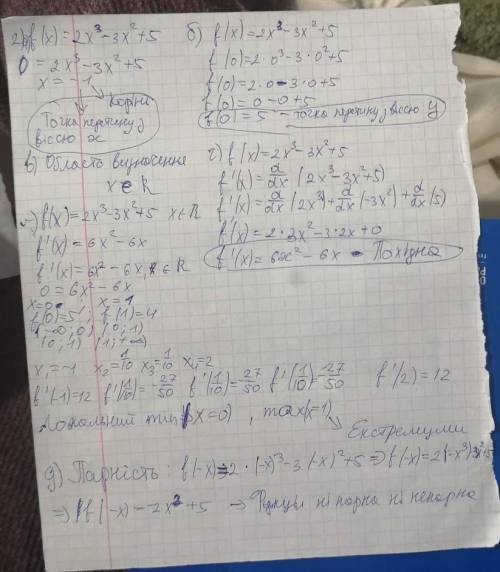 2) а) f(x)=2x³-3x²+5
0=2x³-3x²+5
x=-1
Корінь
Точка перетину з
віссю x
б) f(x)=2x³-3x²+5
f(0)=2·0³-3·0²+5
f(0)=2·0-3·0+5
f(0)=0-0+5
f(0)=5 - точка перетину з віссю y
в) Область визначення
x∈R
г) f(x)=2x³-3x²+5
f'(x)=d/dx (2x³-3x²+5)
f'(x)=d/dx(2x³)+d/dx(-3x²)+d/dx(5)
f'(x)=2·3x²-3·2x+0
f'(x)=6x²-6x - Похідна
f(x)=2x³-3x²+5 x∈R
f'(x)=6x²-6x
f'(x)=6x²-6x, x∈R
0=6x²-6x
x=0 ; x=1
f(0)=5 ; f(1)=4
(-∞;0) (0;1)
(0;1) (1;+∞)
x₁=-1 x₂=1/10 x₃=1/10 x₄=2
f'(-1)=12 f'(1/10)=-27/50 f'(1/10)=-27/50 f'(1/10)=-27/50 f'(2)=12
Локальний min(x=0), max(x=1)
Екстремуми
д) Парність: f(-x)=2·(-x)³-3·(-x)²+5⇒f(-x)=2(-x³)-3x²+5
⇒ f(-x)-2x³+5 → Функція ні парна ні непарна